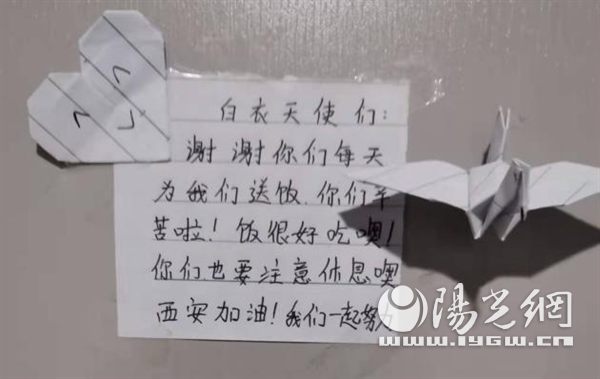 白衣天使们：
谢谢你们每天
为我们送饭.你们辛
苦啦！饭很好吃噢！
你们也要注意休息噢
西安加油！我们一起努力
陽光網
www.iygw.cn